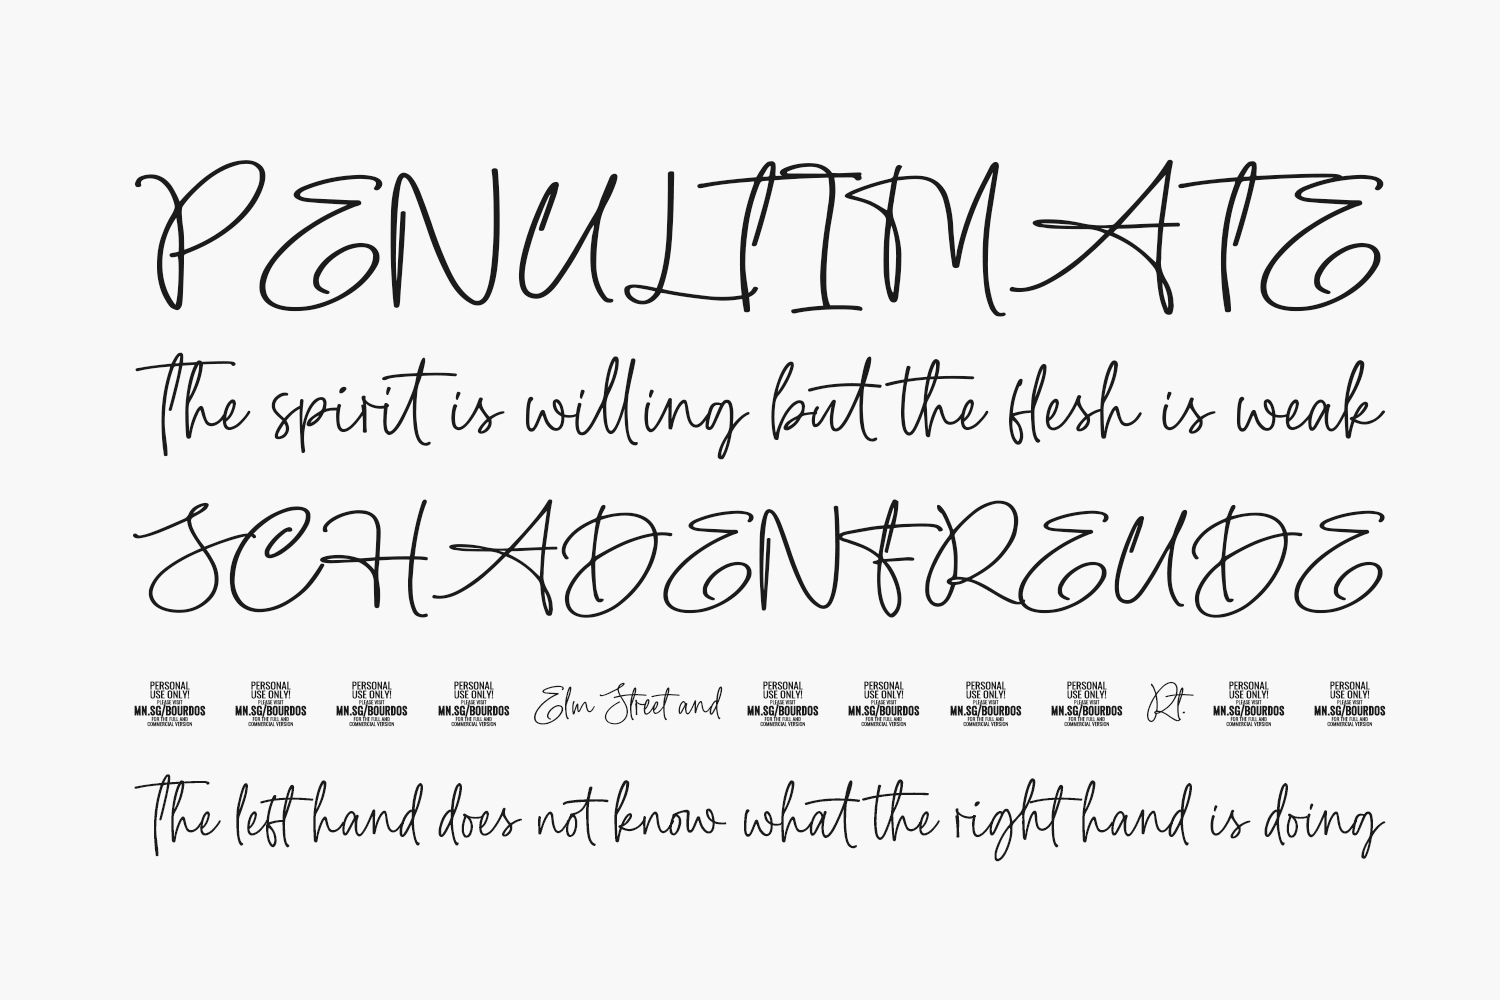 PENULTIMATE
The spirit is willing but the flesh is weak
SCHADENFREUDE
PERSONAL USE ONLY! PLEASE VISIT MN.SG/BOURDOS FOR THE FULL AND COMMERCIAL VERSION PERSONAL USE ONLY! PLEASE VISIT MN.SG/BOURDOS FOR THE FULL AND COMMERCIAL VERSION PERSONAL USE ONLY! PLEASE VISIT MN.SG/BOURDOS FOR THE FULL AND COMMERCIAL VERSION PERSONAL USE ONLY! PLEASE VISIT MN.SG/BOURDOS FOR THE FULL AND COMMERCIAL VERSION Elm Street and PERSONAL USE ONLY! PLEASE VISIT MN.SG/BOURDOS FOR THE FULL AND COMMERCIAL VERSION PERSONAL USE ONLY! PLEASE VISIT MN.SG/BOURDOS FOR THE FULL AND COMMERCIAL VERSION PERSONAL USE ONLY! PLEASE VISIT MN.SG/BOURDOS FOR THE FULL AND COMMERCIAL VERSION PERSONAL USE ONLY! PLEASE VISIT MN.SG/BOURDOS FOR THE FULL AND COMMERCIAL VERSION Rt. PERSONAL USE ONLY! PLEASE VISIT MN.SG/BOURDOS FOR THE FULL AND COMMERCIAL VERSION PERSONAL USE ONLY! PLEASE VISIT MN.SG/BOURDOS FOR THE FULL AND COMMERCIAL VERSION
The left hand does not know what the right hand is doing